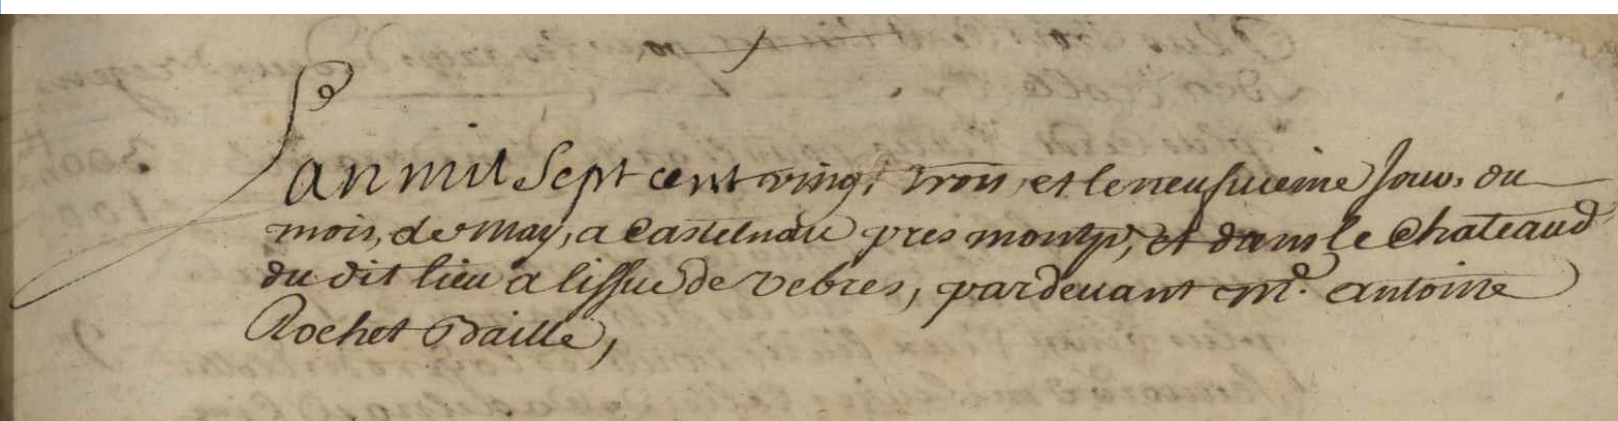 Lan mil Sept cent vingt trois et le neufvieme Jour, du
mois, de May, a Castelnau pres montpr, et dans le Chateaud
du dit lieu a lissue de vebres, pardevant Mr. antoine
Rochet Baille,